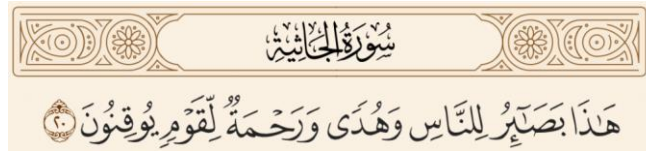 سُورَةُ الجَاثِيَةِ
هَٰذَا بَصَٰٓئِرُ لِلنَّاسِ وَهُدًى وَرَحْمَةٌ لِّقَوْمٍ يُوقِنُونَ ٢٠